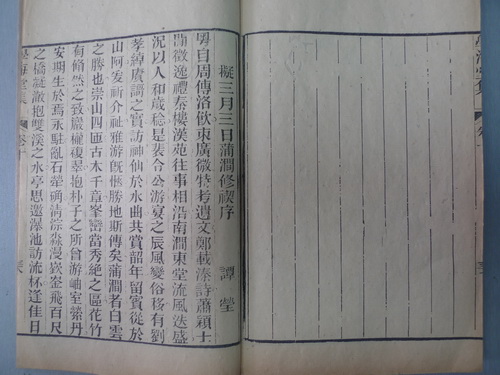 擬三月三日蒲澗修禊序
譚瑩
粵自周傳洛飲束廣微特考遺文鄭載溱詩蕭穎士
勖徵逸禮秦樓漢苑往事相沿南澗東堂流風迭盛
況以人和歲稔是裴令公游宴之辰風變俗移有劉
孝綽賡謌之實訪神仙於水曲共賞韶年留賓從於
山阿爰祈介祉雅游旣愜勝地斯傳矣蒲澗者白雲
之勝也崇山四匝古木千章峯巒當秀絕之區花竹
有翛然之致巖巇複翠抱朴子之所曾游岫室縈丹
安期生於焉永駐亂石犖确清淙淼漫嵌崟飛百尺
之橋縫皺抱雙溪之水亭思邀瀑池訪流杯逢佳日
學海堂集